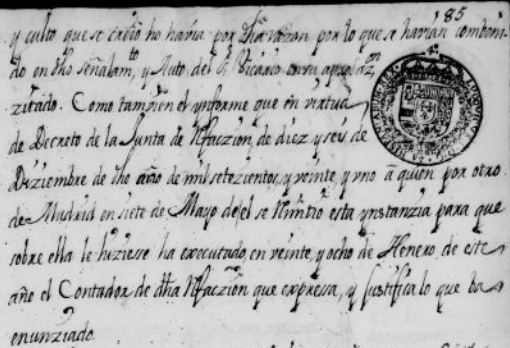 85
y culto que se creio no havia por dha razon por lo que se havian combeni
do en dho señalamto, y Auto del Sr Vicario en su aprobazon
zitado. Como tamvien el ynforme que en virtud
de Decreto de la Junta de Nfaczion, de diez y seis de
Diziembre de dho año de mil setezientos, y veinte, y vno a quien por otro
de Madrid en siete de Mayo del se Rimitio esta ynstanzia para que
sobre ella le hiziesse ha executado, en veinte, y ocho de Henero, de este
año el Contador de dha Nfaczion que expressa, y justifica lo que ba
enunziado.